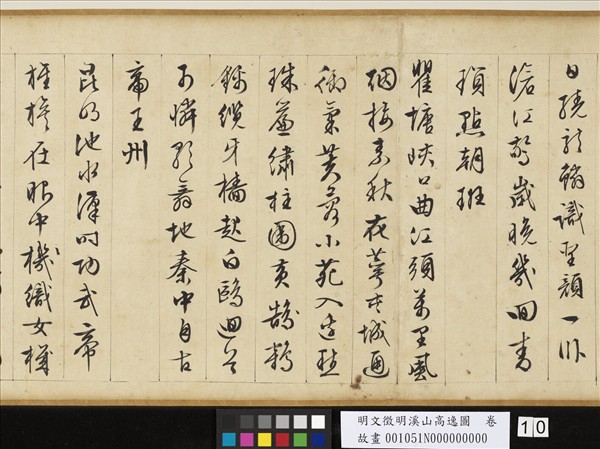 日繞龍鱗識聖顏一臥
滄江驚歲晚幾回青
瑣點朝班
瞿塘峽口曲江頭萬里風
烟接素秋花萼夾城通
御氣芙蓉小苑入邊愁
珠簾繡柱圍黃鵠鶴
錦纜牙檣起白鷗迴首
可憐歌舞地秦中自古
帝王州
昆明池水漢時功武帝
旌旗在眼中機織女機
明文徵明溪山高逸圖 卷
故畫 001051N000000000
10